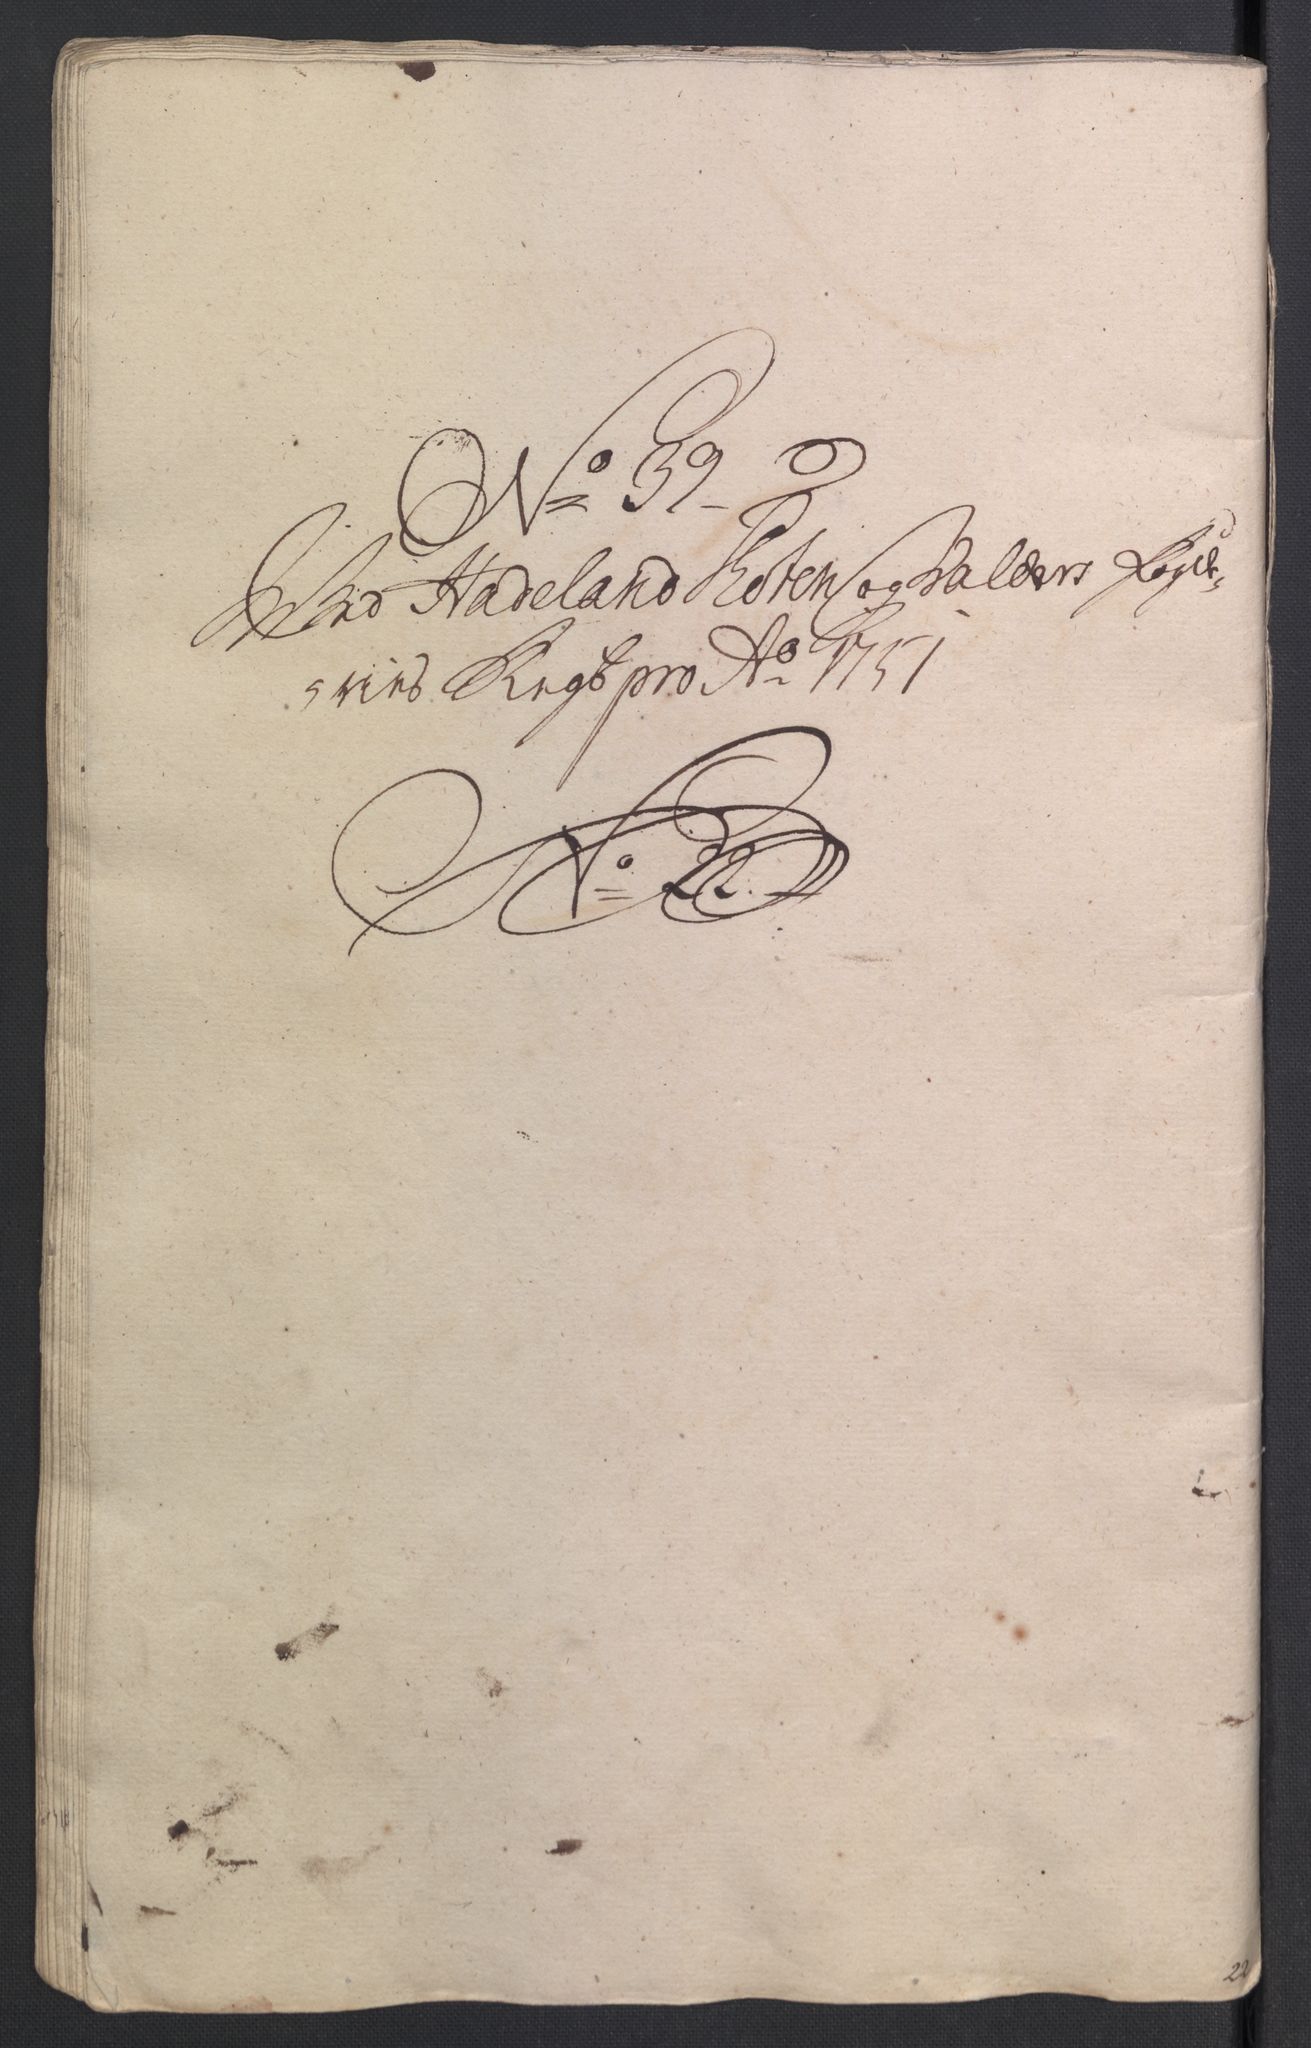 No 39
Ved Hadeland Toten og Valders Fogde-
ries Regsk pro Ao 1751
No 22.
22